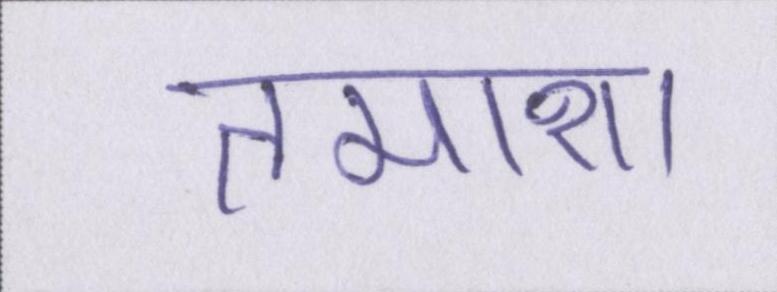 तमाशा